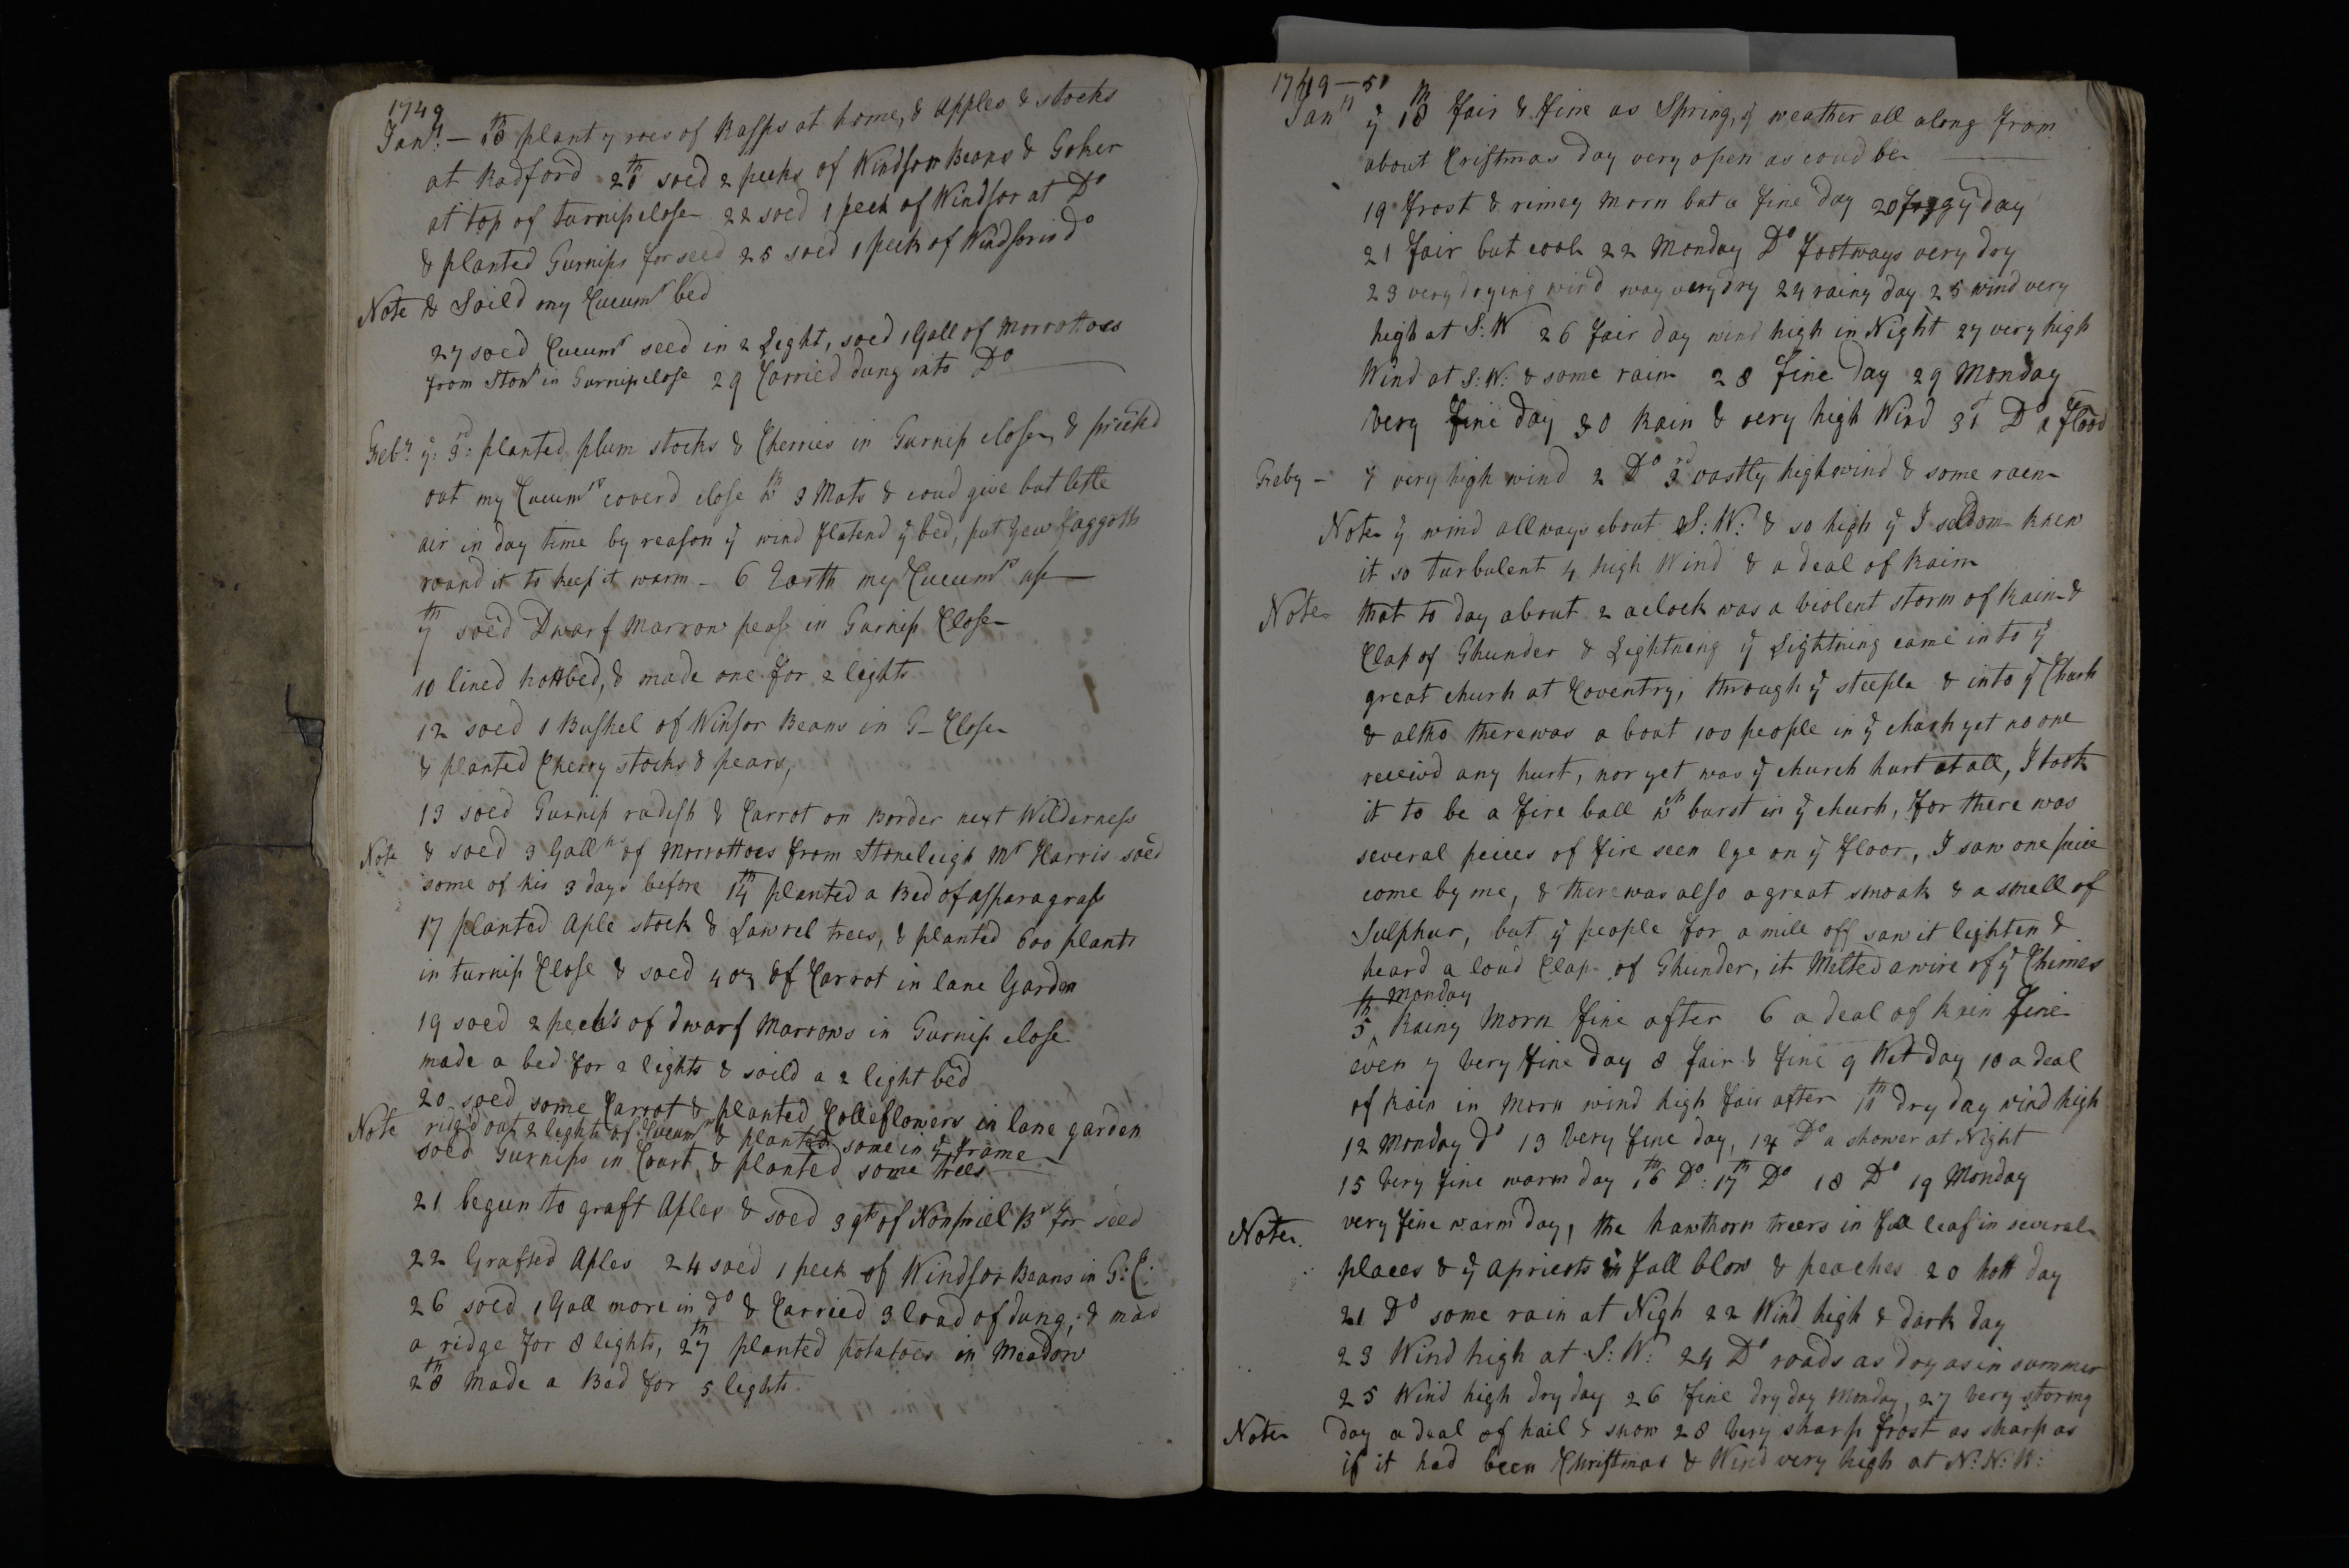 1749
Janry – 18th plant 7 roes of Rasps at home, & Apples & stocks
at Radford 20th soed 2 pecks of Windsor Beans & Goher
at top of turnip close 22 soed 1 peck of Windsor at Do
& planted Turnips for seed 25 soed 1 peck of Windsor in do
Note & Soild my Cucumr bed
27 soed Cucumr seed in 2 Light, soed 1 Gall of Morrottoes
from Ston in Turnip close 29 Carried dung into Do
Febry ye 3rd: planted plum stocks & Cherries in Turnip close, & pricked
out my Cucumrs coverd close wth 3 Mats & coud give but little
air in day time by reason ye wind flatend ye bed, put yew faggotts
round it to keep it warm – 6 Earth my Cucumrs up
7th soed Dwarf Marrow peas in Turnip Close
10 lined hottbed, & made one for 2 lights
12 soed 1 Bushel of Winsor Beans in T– Close
& planted Cherry stocks & pears,
13 soed Turnip radish & Carrot on Border next Wilderness
Note & soed 3 Galls of Morrottoes from Stoneleigh Mr Harris soed
some of his 3 days before 14th planted a Bed of asparagrass
17 planted Aple stock & Lawrel trees, & planted 600 plants
in turnip Close & soed 4 oz of Carrot in lane Garden
19 soed 2 pecks of dwarf Marrows in Turnip close
made a bed for 2 lights & soild a 2 light bed
20 soed some Carrot & planted Colleflowers in lane garden
Note ridg'd out 2 lights of Cucumrs & planted some in ye frame
soed Turnips in Court, & planted some trees
21 begun to graft Aples & soed 3 qts of Nonpriel Bs for seed
22 Grafted Aples 24 soed 1 peck of Windsor Beans in T: C:
26 soed 1 Gall more in do & Carried 3 load of dung, & mad
a ridge for 8 lights, 27th planted potatoes in Meadow
28th Made a Bed for 5 lights
1749–50
Janry ye 18th fair & fine as Spring, ye weather all along from
about Cristmas day very open as coud be
19 frost & rimey Morn but a fine day 20 foggy day
21 fair but cool 22 Monday Do footways very dry
23 very drying wind way very dry 24 rainy day 25 wind very
high at S: W 26 fair day wind high in Night 27 very high
Wind at S: W: & some rain 28 fine day 29 Monday
very fine day 30 Rain & very high Wind 31st Do a flood
Feby – 1 very high wind 2 Do 3rd vastly high wind & some raen
Note ye wind allways about S: W: & so high yt I seldom knew
it so turbulent 4 high Wind & a deal of Rain
Note that to day about 2 aclock was a violent storm of Rain &
Clap of Thunder & Lightning ye Lightning came into ye
great churh at Coventry, through ye steeple & into ye Churh
& altho there was about 100 people in ye churh yet no one
receivd any hurt, nor yet was ye church hurt at all, I took
it to be a fire ball wch burst in ye churh, for there was
several peices of fire seen lye on ye floor, I saw one peice
come by me, & there was also a great smoak & a smell of
Sulphur, but ye people for a mile off saw it lighten &
heard a loud Clap of Thunder, it Melted a wire of ye Chimes
Monday
5th Rainy Morn fine after 6 a deal of Rain fine
even 7 very fine day 8 fair & fine 9 Wet day 10 a deal
of Rain in Morn wind high fair after 11th dry day wind high
12 Monday do 13 very fine day, 14 Do a shower at Night
15 very fine warm day 16th Do: 17th Do 18 Do 19 Monday
Note very fine warm day, the hawthorn treers in full leaf in several
places & ye Apricots in full blow & peaches 20 hott day
21 Do some rain at Nigh 22 Wind high & dark day
23 Wind high at S: W: 24 Do roads as dry as in summer
25 Wind high dry day 26 fine dry day Monday, 27 very stormy
Note day a deal of hail & snow 28 very sharp frost as sharp as
if it had been Christmas & Wind very high at N: N: W: